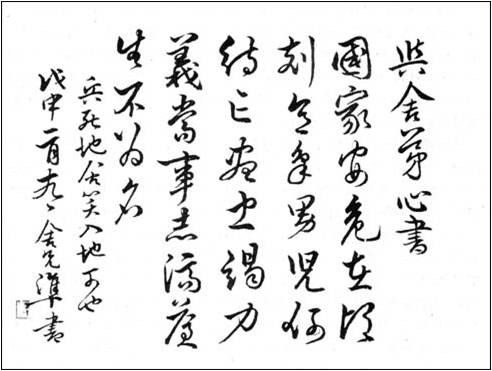 與舍弟心書
國家安危在頃
刻意氣男兒何
待亡盡忠竭力
義當事志濟蒼
生不為名
兵死地含笑入地可也
戊申二月十九日舍兄準書